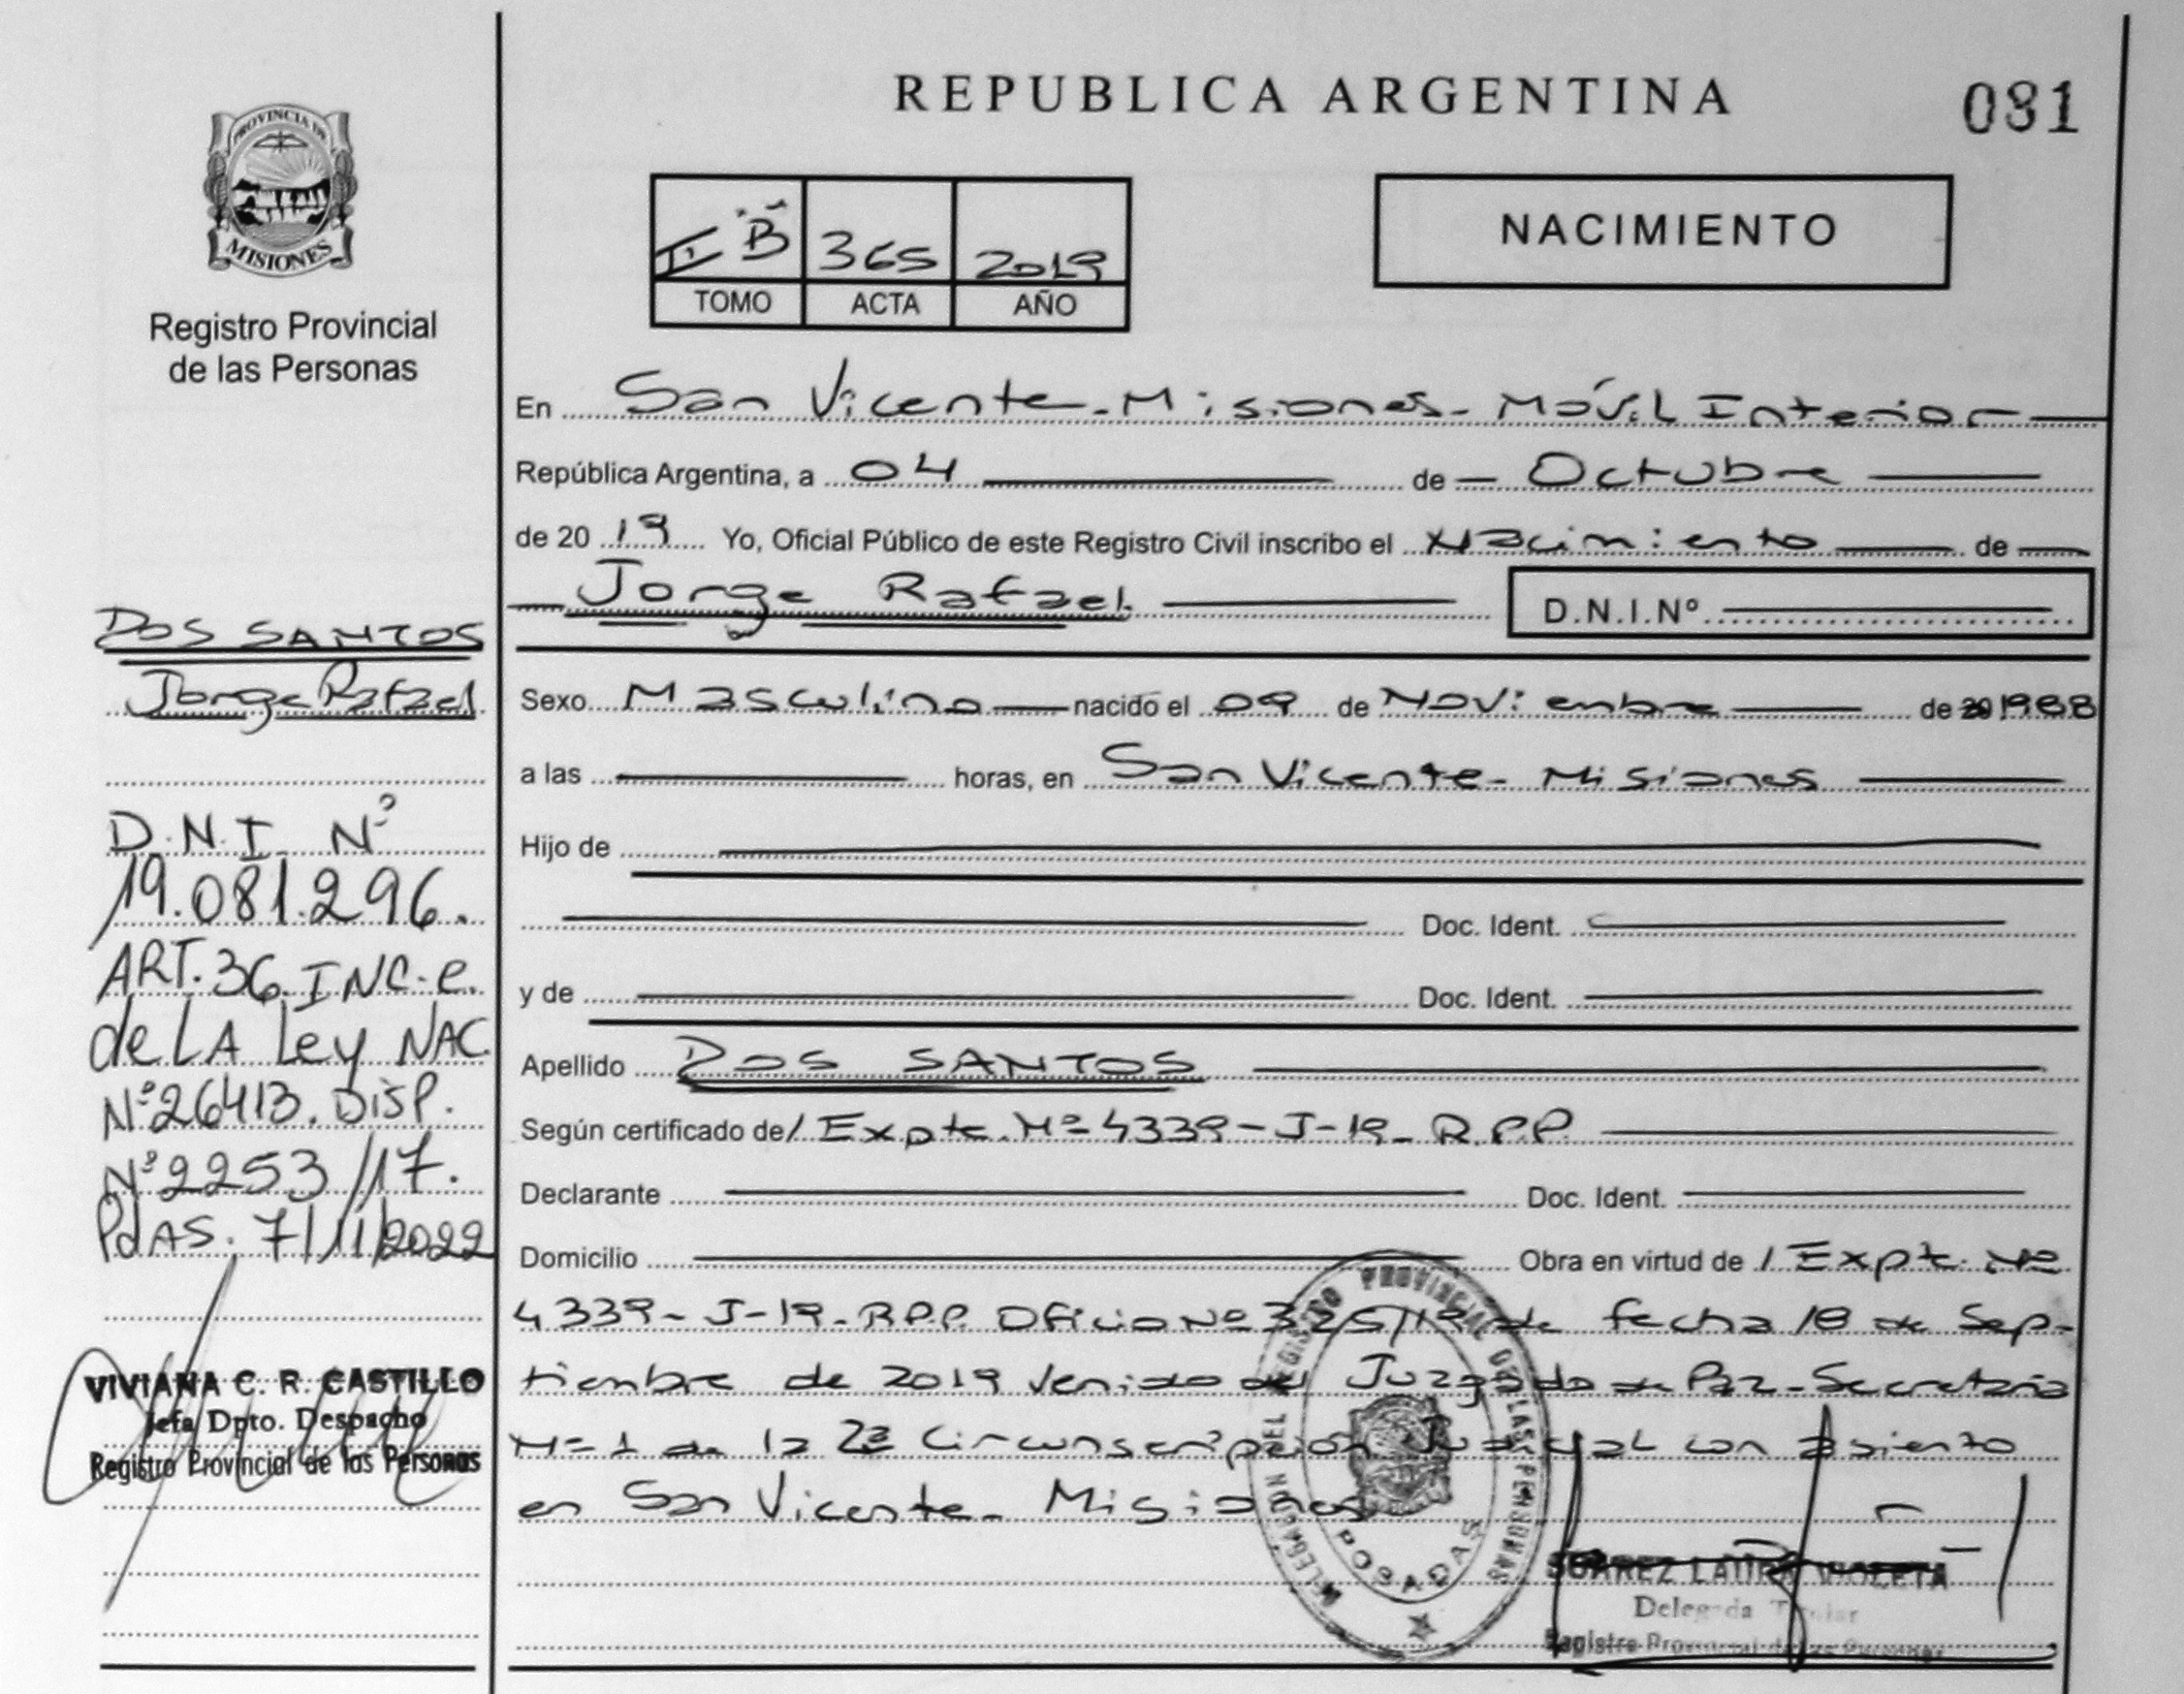 REPUBLICA ARGENTINA
081
PROVINCIA DE
MISIONES
Registro Provincial
de las Personas
II B 365 2019
TOMO ACTA AÑO
NACIMIENTO
En San Vicente - Misiones - Móvil Interior
República Argentina, a 04 de Octubre
de 20 19 Yo, Oficial Público de este Registro Civil inscribo el Nacimiento de
Jorge Rafael
D.N.I.Nº
DOS SANTOS
Jorge Rafael
D.N.I. Nº
19.081.296.
ART.36.INC.e.
de LA Ley NAC.
Nº26413. DISP.
Nº2253/17.
PdAS. 7/11/2022
VIVIANA C. R. CASTILLO
Jefa Dpto. Despacho
Registro Provincial de las Personas
Sexo Masculino nacido el 09 de Noviembre de 20 1988
a las horas, en San Vicente - Misiones
Hijo de
Doc. Ident.
y de Doc. Ident.
Apellido DOS SANTOS
Según certificado de / Expte. Nº 4339-J-19-R.P.P.
Declarante Doc. Ident.
Domicilio Obra en virtud de / Expte. Nº
4339-J-19-R.P.P. Oficio Nº 325/19 de fecha 18 de Sep-
tiembre de 2019 venido del Juzgado de Paz - Secretaria
Nº 1 de la 2ª Circunscripción Judicial con asiento
en San Vicente - Misiones
DELEGACION DEL REGISTRO PROVINCIAL DE LAS PERSONAS
POSADAS
SUAREZ LAURA VIOLETA
Delegada Titular
Registro Provincial de las Personas